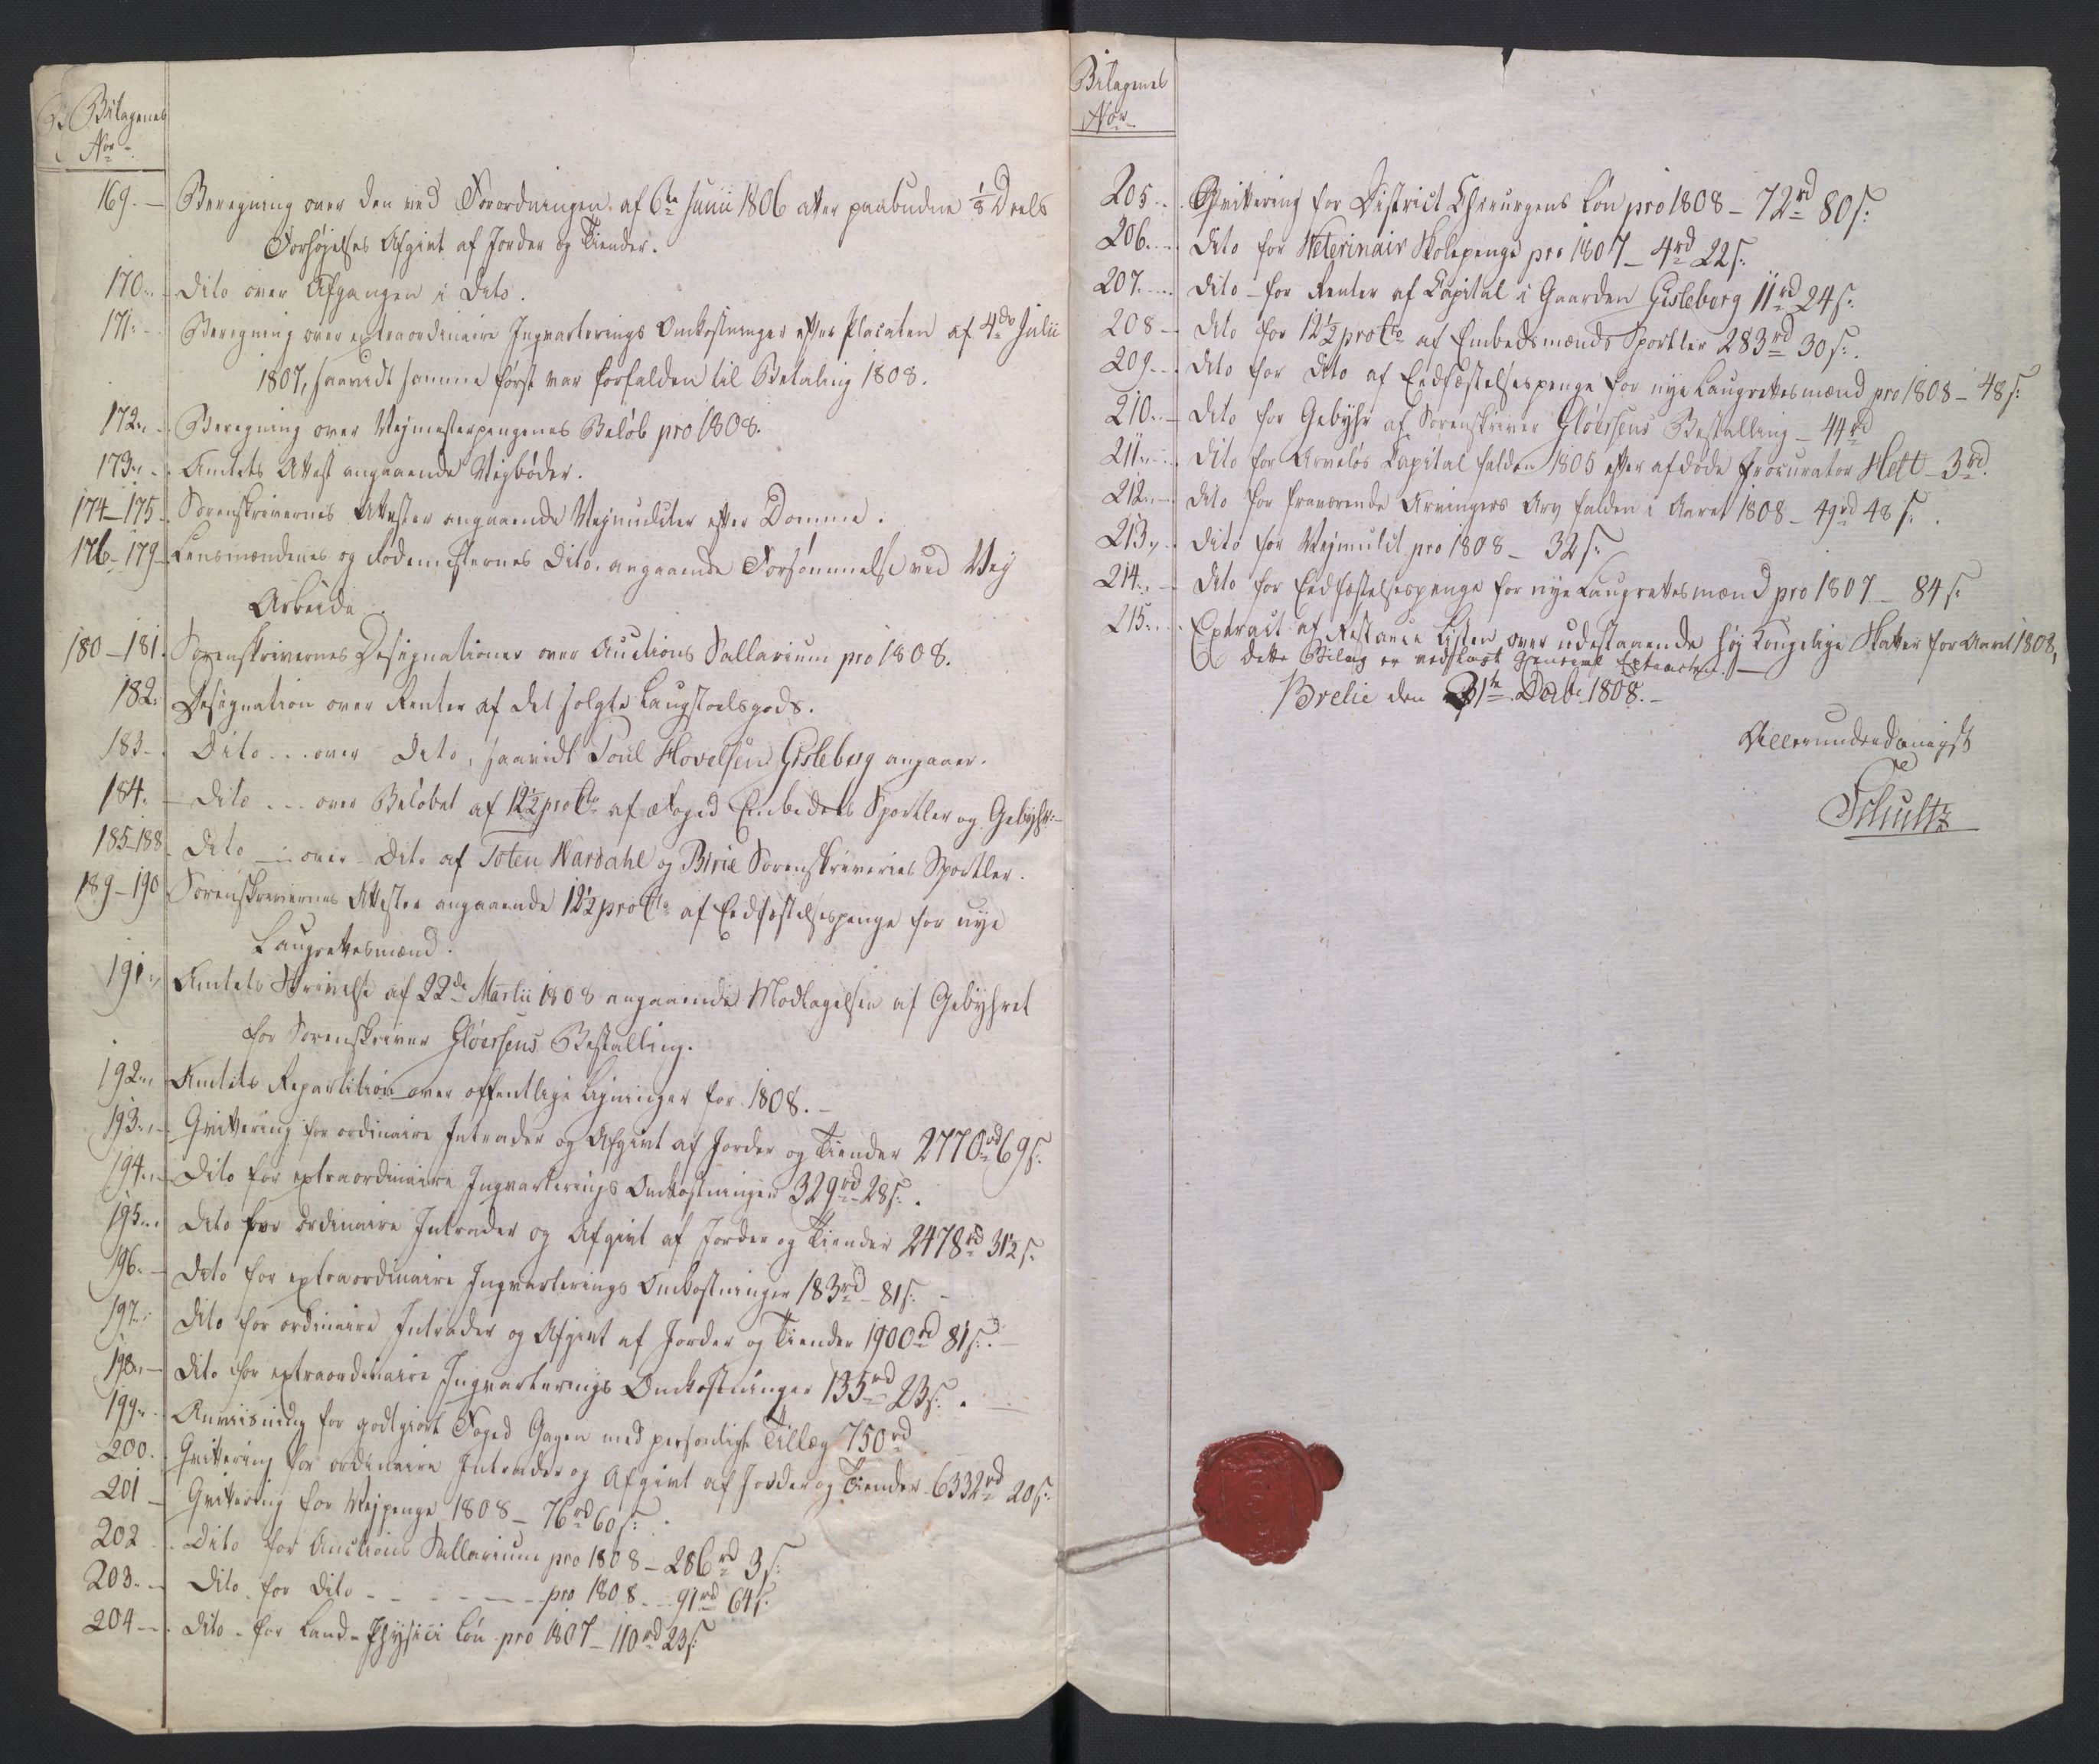 Bilagenes
No
169. Beregning over den ved Forordningen af 6te Junii 1806 atter paabudne 1/8 Deels
Forhøjelses Afgivt af Jorder og Tiender.
170. Dito over Afgangen i Dito.
171. Beregning over extraordinaire Inqvarterings Omkostninger efter Placaten af 4de Julii
1807, saavidt samme først var forfalden til Betaling 1808.
172. Beregning over Vejmesterpengenes Beløb pro 1808.
173. Amtets Attest angaaende Vejbøder.
174-175 Sorenskrivernes Attester angaaende Vejmulcter efter Domme.
176-179 Lensmændenes og Rodemesternes Dito angaaende Forsømmelse ved Vej
Arbeide.
180-181. Sorenskrivernes Designationer over Auctions Sallarium pro 1808.
182. Designation over Renter af det solgte Laugstoelsgods.
183 Dito ... over Dito, saavidt Poul Hovelsen Gisleberg angaaer.
184. Dito ... over Beløbet af 12½ proCto af Foged Embedets Sportler og Gebyhr.
185-188 Dito over Dito af Toten Wardahl og Birie Sorenskriveries Sportler.
189-190 Sorenskrivernes Attester angaaende 12½ proCto af Eedfæstelsespenge for nye
Laugrettesmænd.
191. Amtets Skrivelse af 22de Martii 1808 angaaende Modtagelsen af Gebyhret
for Sorenskriver Gløersens Bestalling.
192. Amtets Repartition over offentlige Ligninger for 1808.
193. Qvittering for ordinaire Intrader og Afgivt af Jorder og Tiender 2770rd 69s.
194. Dito for extraordinaire Inqvarterings Omkostninger 329rd 28s.
195. Dito for ordinaire Intrader og Afgivt af Jorder og Tiender 2478rd 31½s.
196. Dito for extraordinaire Inqvarterings Omkostninger 183rd 81s.
197. Dito for ordinaire Intrader og Afgivt af Jorder og Tiender 1900rd 81s.
198. Dito for extraordinaire Inqvarterings Omkostninger 135rd 23s.
199. Anviisning for godtgiort Foged Gagen med personligt Tillæg 750rd
200. Qvittering for ordinaire Intrader og Afgivt af Jorder og Tiender 6332rd 20s.
201 Qvittering for Vejpenge 1808 - 76rd 60s.
202 Dito for Auctions Sallarium pro 1808 - 286rd 3s.
203. Dito for Dito - - - - pro 1808 - 91rd 64s.
204 Dito - for Land-Physici Løn pro 1807 - 110rd 23s.
Bilagenes
No
205. Qvittering for District Chirurgens Løn pro 1808 - 72rd 80s.
206. Dito for Veterinair Skolepenge pro 1807 - 4rd 22s.
207. Dito - for Renter af Capital i Gaarden Gisleberg 11rd 24s.
208 Dito for 12½ proCto af Embedsmænds Sportler 283rd 30s.
209. Dito for Dito af Eedfæstelsespenge for nye Laugrettesmænd pro 1808 - 48s.
210. Dito for Gebyhr af Sorenskriver Gløersens Bestalling - 44rd
211. Dito for Arveløs Capital falden 1805 efter afdøde Procurator Hett - 3rd.
212. Dito for fraværende Arvingers Arv falden i Aaret 1808 - 49rd 48s.
213. Dito for Vejmulct pro 1808 - 32s.
214. Dito for Eedfæstelsespenge for nye Laugrettesmænd pro 1807 - 84s.
215. Extract af Restance Listen over udestaaende høj Kongelige Skatter for Aaret 1808,
dette Bilag er vedhæft General Extracten.
Brelie den 31te Decbr 1808.
Allerunderdanigst
Schultz